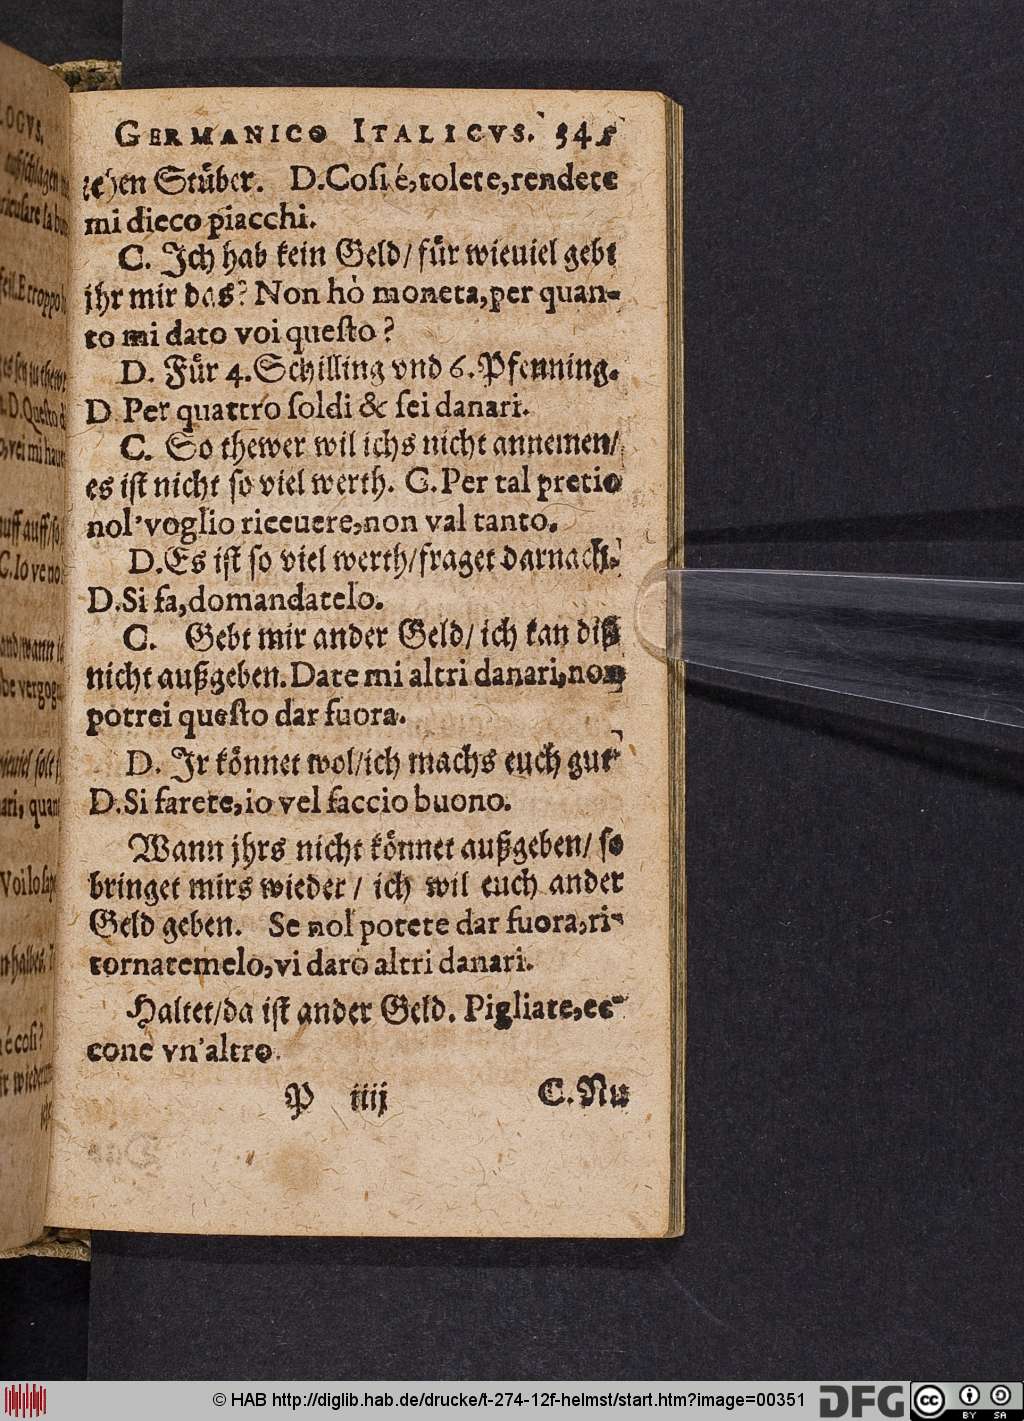 GERMANICO ITALICVS. 345
zehen Stüber. D.Cosi é,tolete,rendete
mi dieco piacchi.
C. Ich hab kein Geld/ für wieuiel gebt
jhr mir das? Non hò moneta,per quan-
to mi dato voi questo?
D. Für 4. Schilling vnd 6. Pfenning.
D Per quattro soldi & sei danari.
C. So thewer wil ichs nicht annemen/
es ist nicht so viel werth. C.Per tal pretio
nol'voglio riceuere,non val tanto.
D.Es ist so viel werth/fraget darnach.
D.Si fa,domandatelo.
C. Gebt mir ander Geld/ ich kan diß
nicht außgeben. Date mi altri danari,non
potrei questo dar fuora.
D. Ir könnet wol/ich machs euch gut
D.Si farete,io vel faccio buono.
Wann jhrs nicht könnet außgeben/ so
bringet mirs wieder / ich wil euch ander
Geld geben. Se nol potete dar fuora,ri-
tornatemelo,vi daro altri danari.
Haltet/da ist ander Geld. Pigliate,ec-
cone vn'altro.
P iiij C.Nu
© HAB http://diglib.hab.de/drucke/t-274-12f-helmst/start.htm?image=00351 DFG cc BY SA